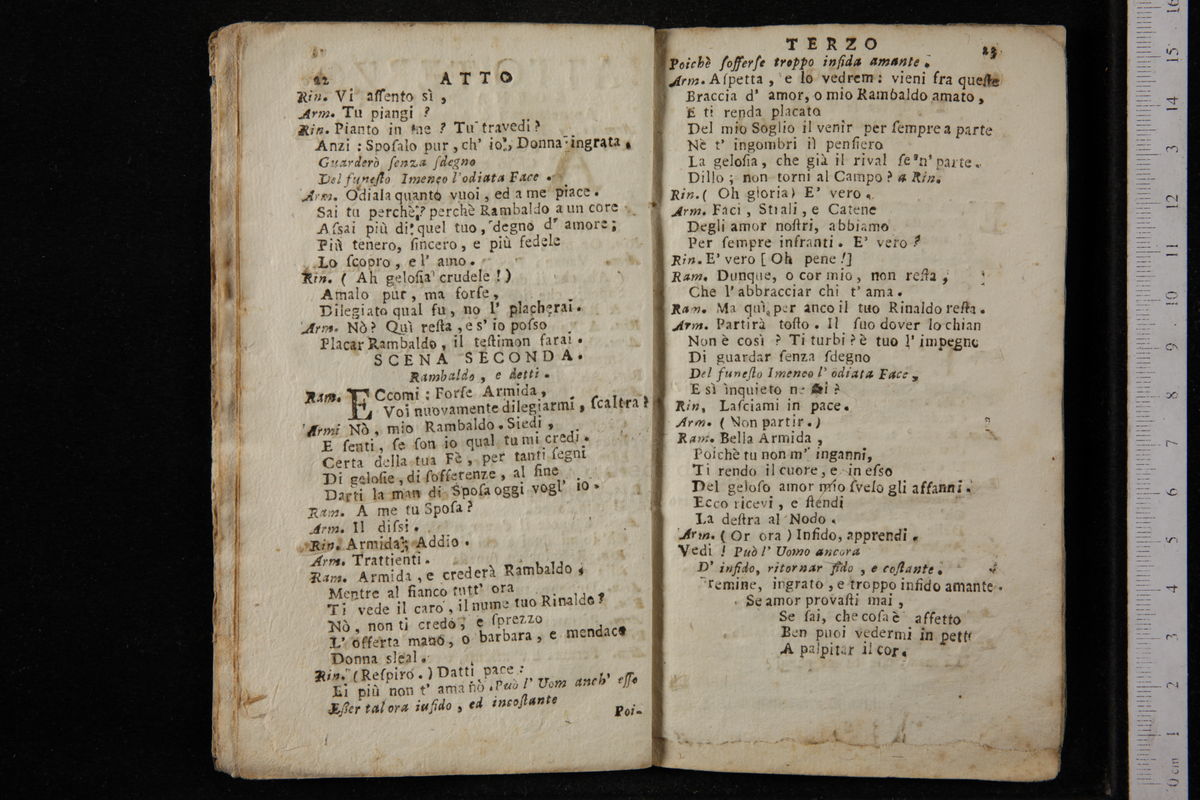 22 ATTO
Rin. Vi aſſento sì ,
Arm. Tu piangi ?
Rin. Pianto in me ? Tu travedi ?
Anzi : Spoſalo pur , ch' io , Donna ingrata .
Guarderò ſenza ſdegno
Del funeſto Imeneo l'odiata Face .
Arm. Odiala quanto vuoi , ed a me piace .
Sai tu perchè ? perchè Rambaldo a un core
Aſsai più di quel tuo , degno d' amore ;
Più tenero, ſincero , e più fedele
Lo ſcopro , e l' amo .
Rin. ( Ah geloſia crudele ! )
Amalo pur , ma forſe ,
Dilegiato qual fu , no l' placherai .
Arm. Nò ? Quì reſta , e s' io poſso
Placar Rambaldo , il teſtimon farai .
SCENA SECONDA.
Rambaldo , e detti .
Ram. ECcomi : Forſe Armida ,
Voi nuovamente dilegiarmi , ſcaltra ?
Armi Nò , mio Rambaldo . Siedi ,
E ſenti , ſe ſon io qual tu mi credi .
Certa della tua Fè , per tanti ſegni
Di geloſie , di ſofferenze , al fine
Darti la man di Spoſa oggi vogl' io .
Ram. A me tu Spoſa ?
Arm. Il diſsi .
Rin. Armida ; Addio .
Arm. Trattienti .
Ram. Armida , e crederà Rambaldo ,
Mentre al fianco tutt' ora
Ti vede il caro , il nume tuo Rinaldo ?
Nò , non ti credo , e ſprezzo
L' offerta mano , o barbara , e mendace
Donna sleal .
Rin. (Reſpiro . ) Datti pace :
Ei più non t' ama nò . Può l' Uom anch' eſſo
Eſſer tal ora infido , ed incoſtante
Poi-
TERZO 23
Poichè ſofferſe troppo infida amante .
Arm. Aſpetta , e lo vedrem : vieni fra queſte
Braccia d' amor, o mio Rambaldo amato ,
E ti renda placato
Del mio Soglio il venir per ſempre a parte
Nè t' ingombri il penſiero
La geloſia , che già il rival ſe 'n' parte .
Dillo ; non torni al Campo ? a Rin.
Rin. ( Oh gloria ) E' vero .
Arm. Faci , Strali , e Catene
Degli amor noſtri, abbiamo
Per ſempre infranti . E' vero ?
Rin. E' vero [ Oh pene ! ]
Ram. Dunque, o cor mio, non reſta ,
Che l' abbracciar chi t' ama .
Ram. Ma quì per anco il tuo Rinaldo reſta .
Arm. Partirà toſto . Il ſuo dover lo chian
Non è così ? Ti turbi ? è tuo l' impegno
Di guardar ſenza ſdegno
Del funeſto Imeneo l' odiata Face ,
E sì inquieto ne ?
Rin, Laſciami in pace .
Arm. ( Non partir . )
Ram. Bella Armida ,
Poichè tu non m' inganni,
Ti rendo il cuore , e in eſso
Del geloſo amor mio ſvelo gli affanni .
Ecco ricevi , e ſtendi
La deſtra al Nodo .
Arm. ( Or ora ) Infido, apprendi .
Vedi ! Può l' Uomo ancora
D' infido, ritornar fido , e coſtante .
Temine, ingrato , e troppo infido amante .
Se amor provaſti mai ,
Se ſai , che coſa è affetto
Ben puoi vedermi in pett
A palpitar il cor .